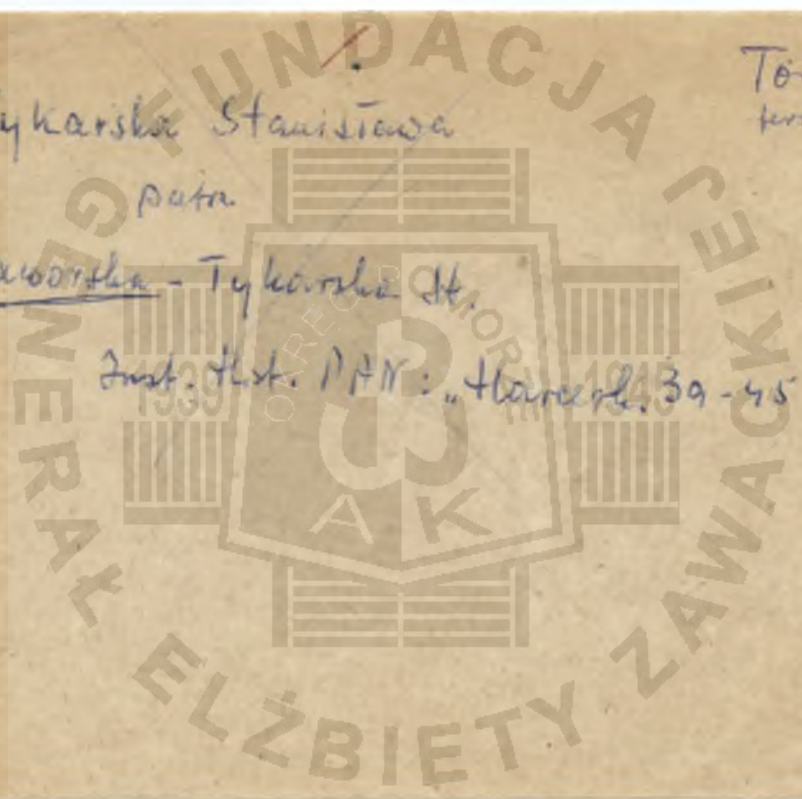 ykarska Stanisława
patrz
aworska - Tykarska St.
Inst. Hist. PAN: „Harcersk. 39-45
FUNDACJA
GENERAŁ ELŻBIETY ZAWACKIEJ
1939 1945
AK